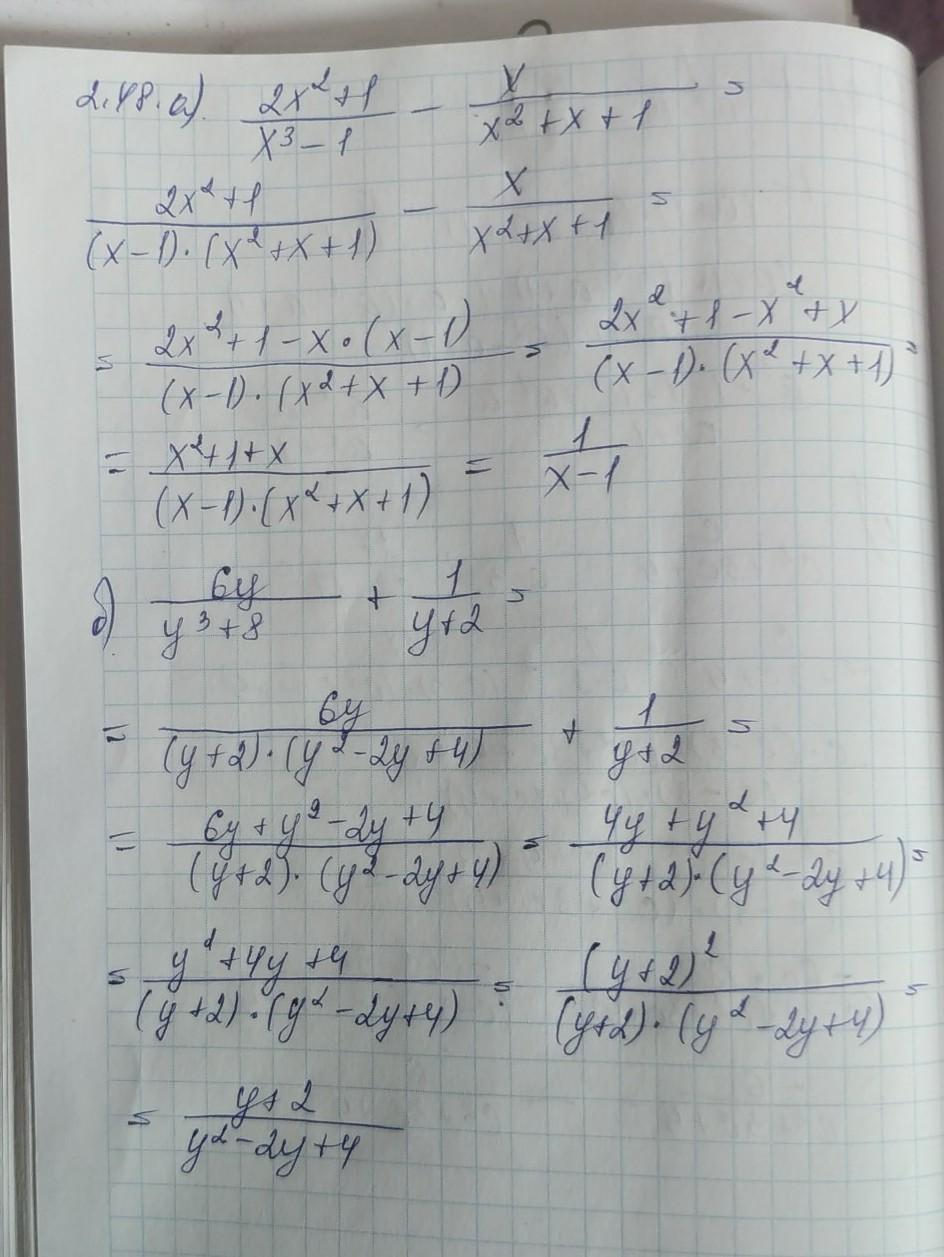 2.48. а) (2x² + 1)/(x³ - 1) - x/(x² + x + 1) =
(2x² + 1)/((x-1)·(x² + x + 1)) - x/(x² + x + 1) =
= (2x² + 1 - x·(x-1))/((x-1)·(x² + x + 1)) = (2x² + 1 - x² + x)/((x-1)·(x² + x + 1)) =
= (x² + 1 + x)/((x-1)·(x² + x + 1)) = 1/(x-1)
б) 6y/(y³ + 8) + 1/(y+2) =
= 6y/((y+2)·(y² - 2y + 4)) + 1/(y+2) =
= (6y + y² - 2y + 4)/((y+2)·(y² - 2y + 4)) = (4y + y² + 4)/((y+2)·(y² - 2y + 4)) =
= (y² + 4y + 4)/((y+2)·(y² - 2y + 4)) = (y+2)²/((y+2)·(y² - 2y + 4)) =
= (y+2)/(y² - 2y + 4)